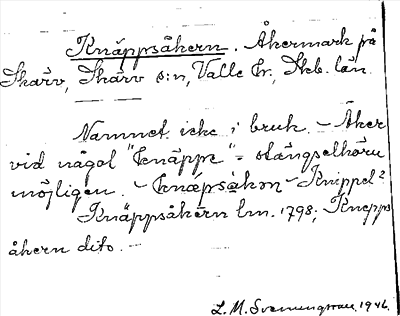 Knäppsåkern. Åkermark på
Skärv, Skärv s:n, Valle hr., Skb. län.
Namnet icke i bruk. – Åker
vid något "knäppe" = stängselhörn
möjligen. – knäpsåkən – Knippel?
Knäppsåkern lm. 1798; Knepps
åkern dito. –
L. M. Svenungsson, 1946.